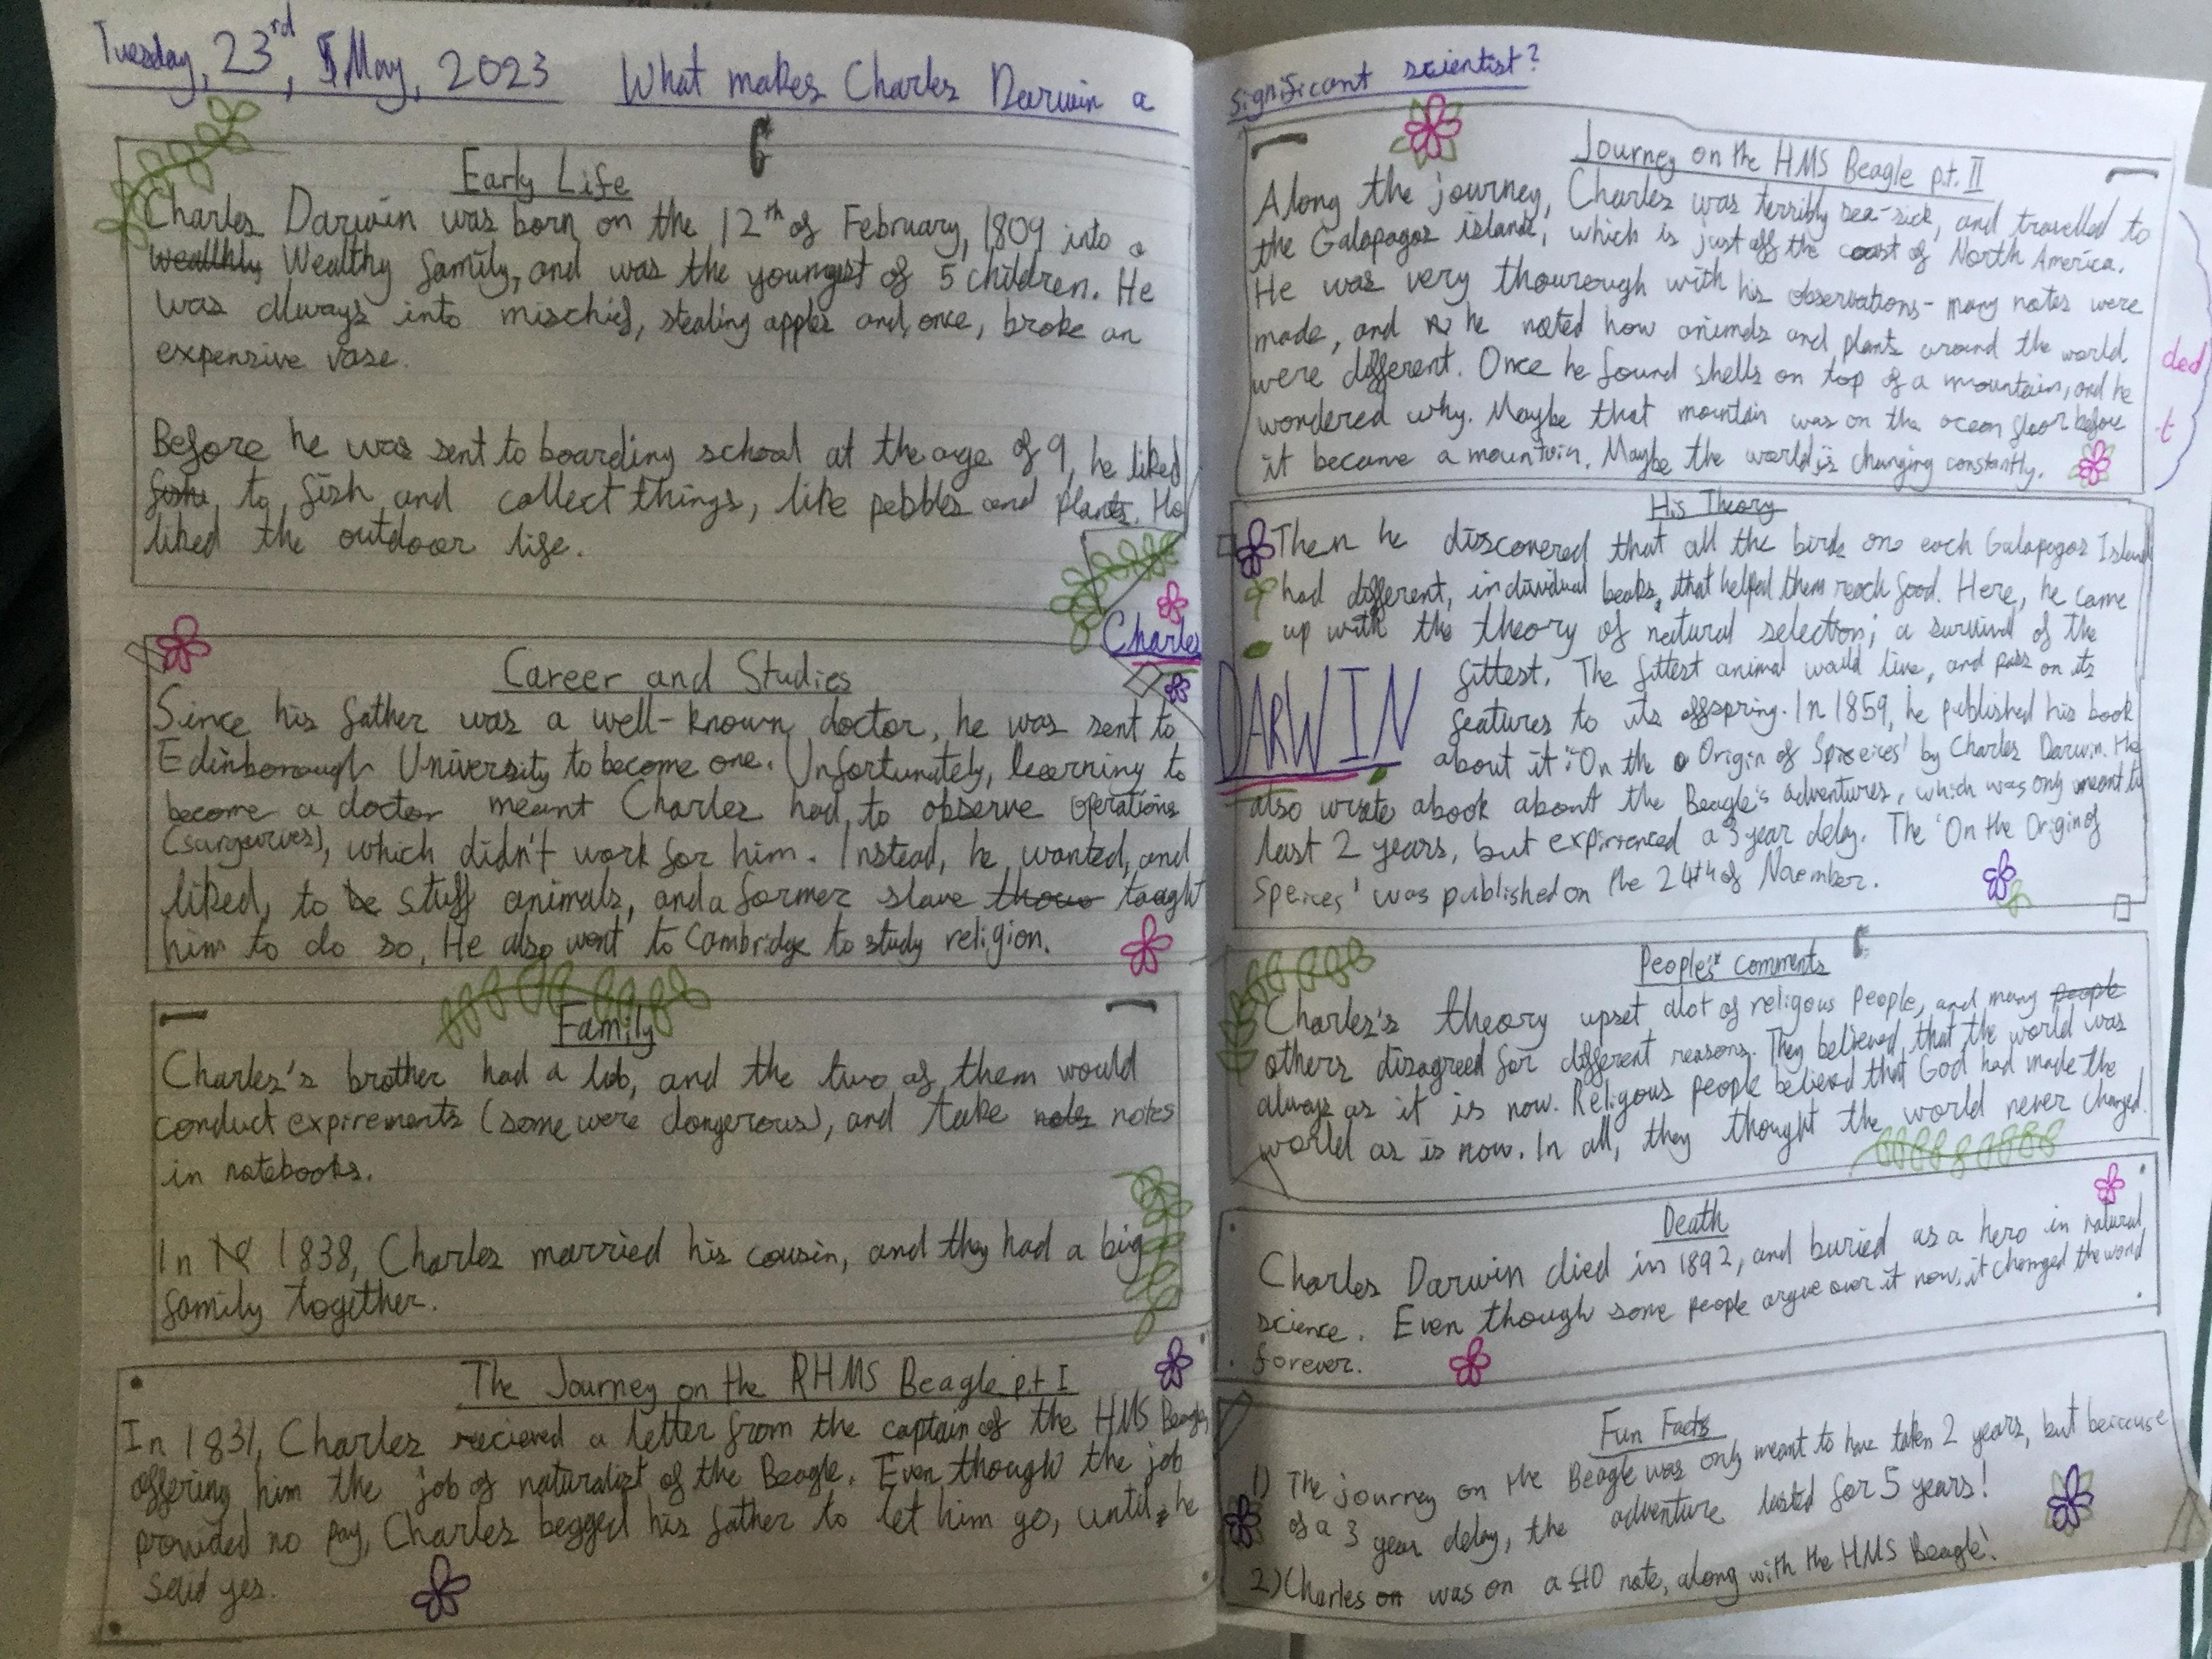 Tuesday, 23rd, May, 2023 What makes Charles Darwin a
Early Life
Charles Darwin was born on the 12th of February, 1809 into a
wealthly Wealthy family, and was the youngest of 5 children. He
was always into mischief, stealing apples and, once, broke an
expensive vase.
Before he was sent to boarding school at the age of 9, he liked
fishi to fish and collect things, like pebbles and plants. He
liked the outdoor life.
Charles
Career and Studies
Since his father was a well-known doctor, he was sent to
Edinborough University to become one. Unfortunately, learning to
become a doctor meant Charles had to observe operations
(surguries), which didn't work for him. Instead, he wanted, and
liked, to be stuff animals, and a former slave thow taught
him to do so. He also went to Cambridge to study religion.
Family
Charles's brother had a lab, and the two of them would
conduct expirements (some were dongerous), and take notes notes
in notebooks.
In 1838, Charles married his cousin, and they had a big
family together.
The Journey on the RHMS Beagle p.t I
In 1831, Charles recieved a letter from the captain of the HMS Beagle,
offering him the job of naturalist of the Beagle. Even though the job
provided no pay, Charles begged his father to let him go, until he
said yes.
significant scientist?
Journey on the HMS Beagle p.t. II
Along the journey, Charles was terribly sea-sick, and travelled to
the Galapagos islands, which is just off the coast of North America.
He was very thourough with his observations - many notes were
made, and he noted how animals and plants around the world
were different. Once he found shells on top of a mountain, and he
wondered why. Maybe that mountain was on the ocean floor before
it became a mountain. Maybe the world is changing constantly.
ded
-t
His Theory
Then he discovered that all the birds on each Galapagos Island
had different, individual beaks, that helped them reach food. Here, he came
up with the theory of natural selection; a survival of the
fittest. The fittest animal would live, and pass on its
DARWIN
features to its offspring. In 1859, he published his book
about it: 'On the Origin of Speices' by Charles Darwin. He
also wrote a book about the Beagle's adventures, which was only meant to
last 2 years, but expirienced a 3 year delay. The 'On the Origin of
Speices' was published on the 24th of November.
People's comments
Charles's theory upset alot of religous people, and many people
others disagreed for different reasons. They believed that the world was
always as it is now. Religous people believed that God had made the
world as is now. In all, they thought the world never changed.
Death
Charles Darwin died in 1892, and buried as a hero in natural
science. Even though some people argue over it now, it changed the world
forever.
Fun Facts
1) The journey on the Beagle was only meant to have taken 2 years, but beccause
of a 3 year delay, the adventure lasted for 5 years!
2) Charles on was on a £10 note, along with the HMS Beagle!